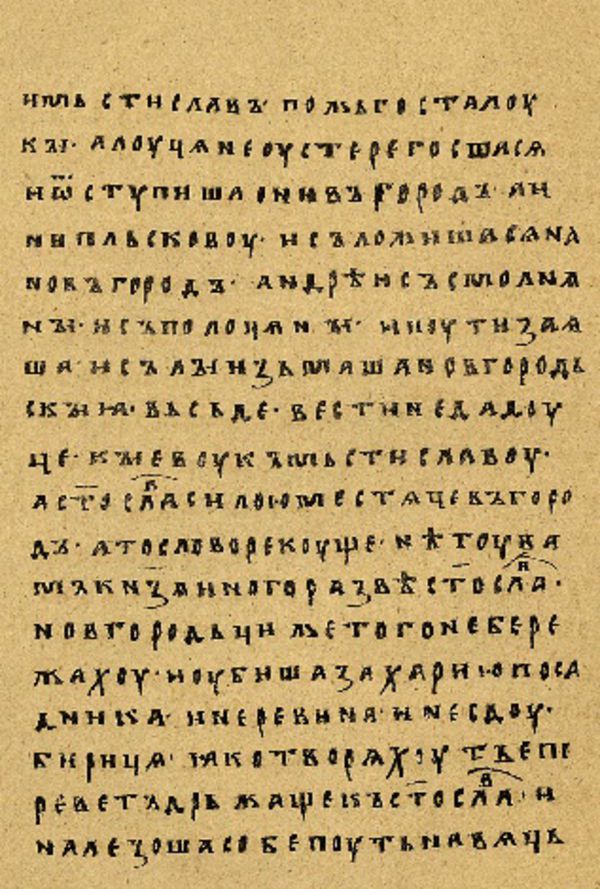 и мьстиславъ · пожьгоста лоу
кы · а лоучяне оустерегошася
и ѿступиша они въ городъ · а и
ни пльсковоу · и съложишася на
новъгородъ · андрѣи съ смолня
ны · и съ полочяны · и поути зая
ша · и сълы изъмаша новгородь
скыя · вьсьде · вести не дадоу
че · кыевоу къ мьстиславоу ·
а стослава силою местяче въ горо
дъ · а то слово рекоуще · нѣтоу ва
мъ кнѧзя иного развѣ стослава ·
новгородьци же того не бере
жахоу · и оубиша захарию поса
дника · и неревина · и несдоу ·
бирица · яко творяхоу тъ е пе
реветъ дрьжаще къ стославоу · и
налезоша собе поуть на вячь